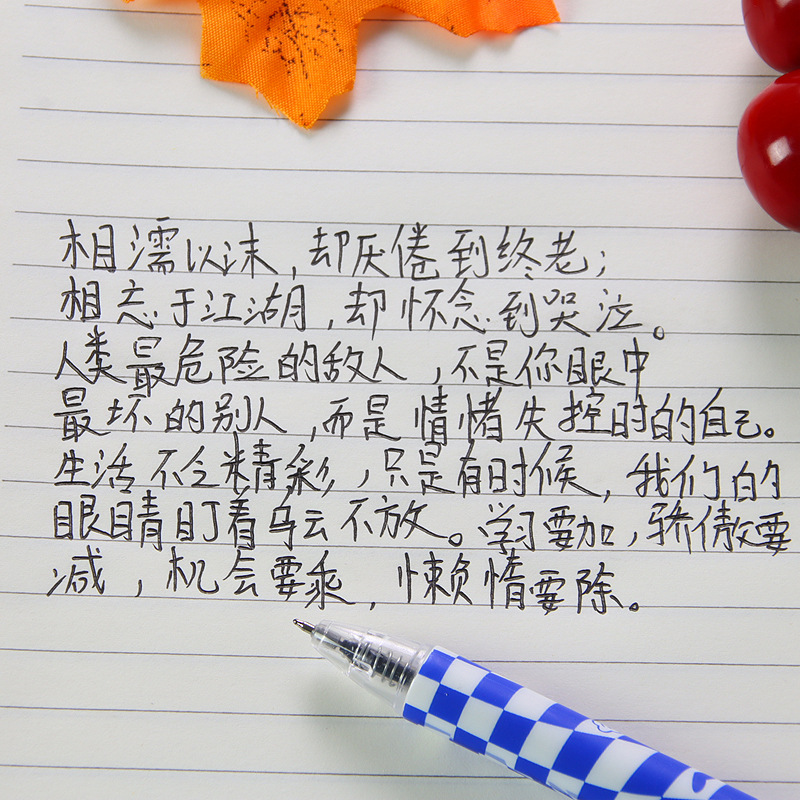 相濡以沫,却厌倦到终老;
相忘于江湖,却怀念到哭泣。
人类最危险的敌人,不是你眼中
最坏的别人,而是情绪失控时的自己。
生活不乏精彩,只是有时候,我们的
眼睛盯着乌云不放。学习要加,骄傲要
减,机会要乘,懒惰要除。